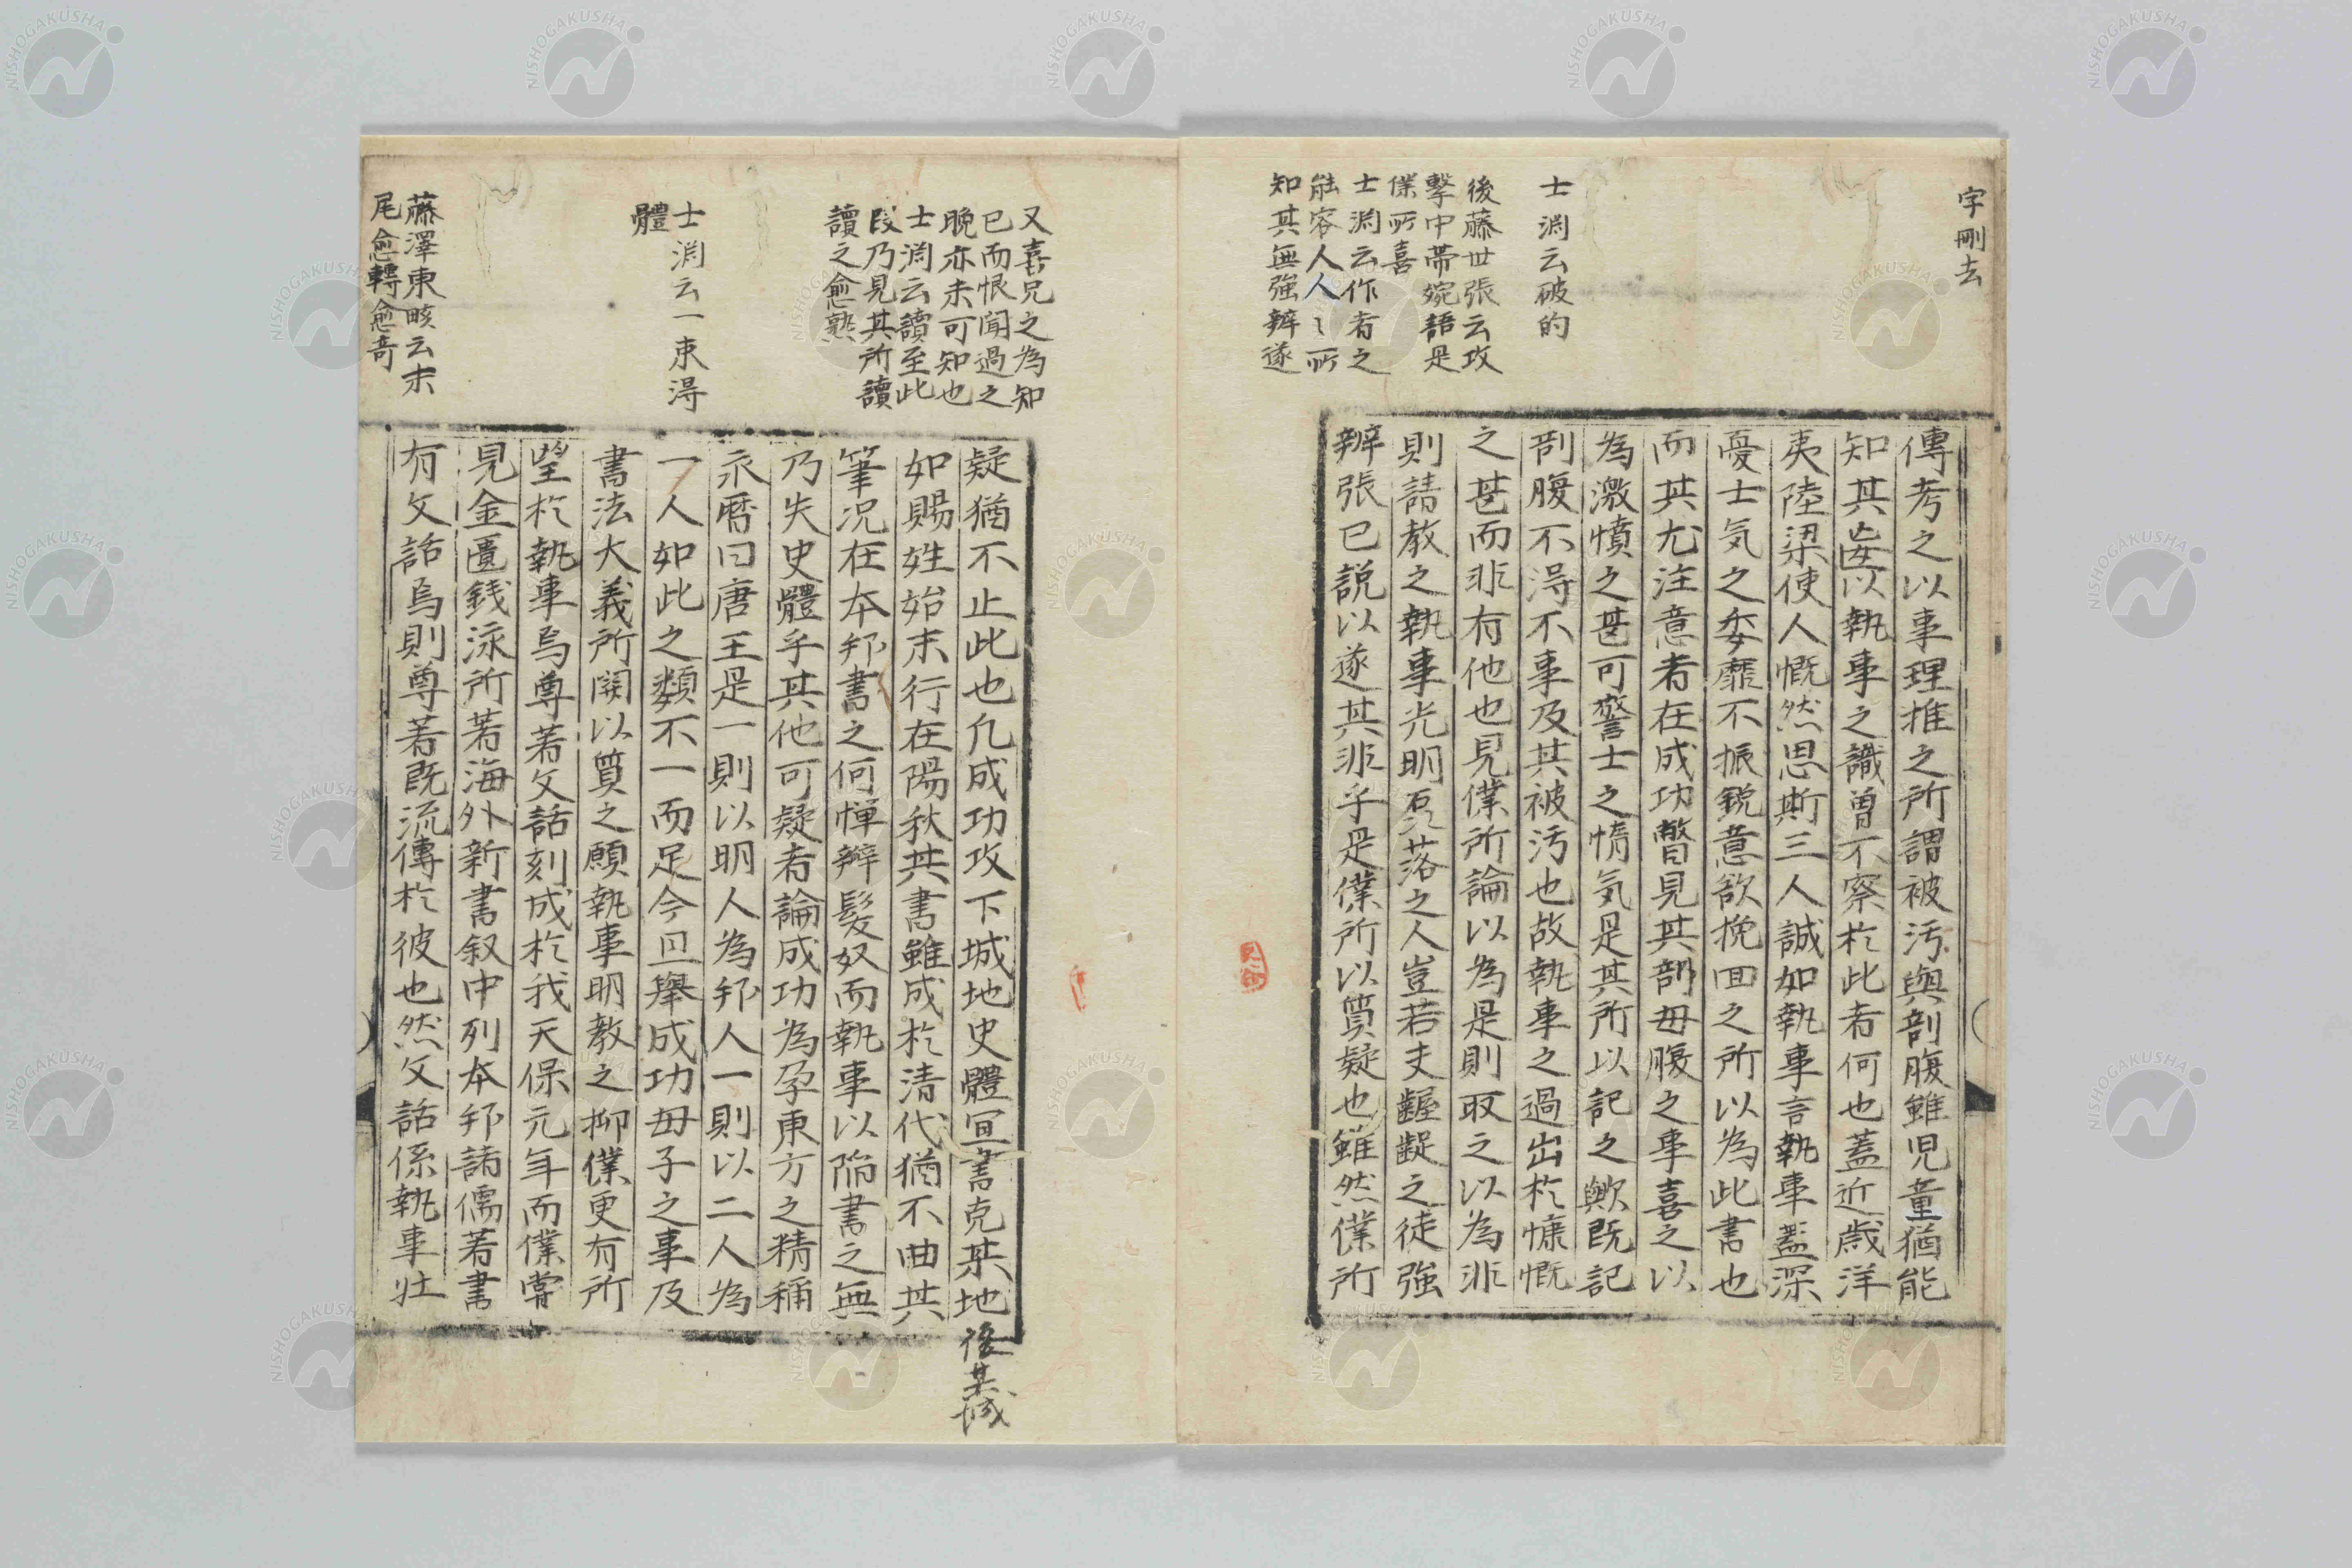 字刪去
士渕云破的
後藤世張云攻
擊中帶婉語是
僕所喜
士渕云作者之
能容人人〻所
知其無強辨遂
傳考之以事理推之所謂被汚與剖腹雖児童猶能
知其妄以執事之識曽不察於此者何也蓋近歲洋
夷陸梁使人慨然思斯三人誠如執事言執事蓋深
憂士気之委靡不振鋭意欲挽回之所以為此書也
而其尤注意者在成功瞥見其剖毋腹之事喜之以
為激憤之甚可警士之惰気是其所以記之歟既記
剖腹不淂不事及其被汚也故執事之過出於慷慨
之甚而非有他也見僕所論以為是則取之以為非
則請教之執事光明磊落之人豈若夫齷齪之徒強
辨張已説以遂其非乎是僕所以質疑也雖然僕所
又喜兄之為知
已而恨聞過之
晩亦未可知也
士渕云讀至此
段乃見其所讀
讀之愈熟
士渕云一束淂
體
藤澤東畡云末
尾愈轉愈奇
疑猶不止此也凢成功攻下城地史體冝書克某地
後某城
如賜姓始末行在陽秋其書雖成於清代猶不曲其
筆况在本邦書之何憚辨髮奴而執事以陷書之無
乃失史體乎其他可疑者論成功為孕東方之精稱
永暦曰唐王是一則以明人為邦人一則以二人為
一人如此之類不一而足今並舉成功毋子之事及
書法大義所関以質之願執事明教之抑僕更有所
望於執事焉尊著文話刻成於我天保元年而僕嘗
見金匱錢泳所著海外新書叙中列本邦諸儒著書
有文話焉則尊著既流傳於彼也然文話係執事壮